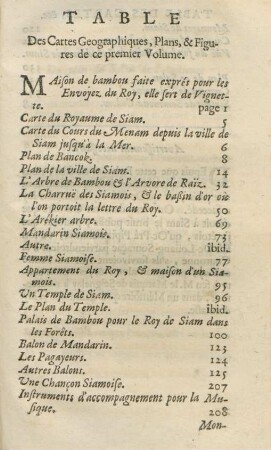 TABLE
Des Cartes Geographiques, Plans, & Figu-
res de ce premier Volume.
MAison de bambou faite exprêt pour les
Envoyez du Roy, elle sert de Vignet-
te. page 1
Carte du Royaume de Siam. 5
Carte du Cours du Menam depuis la ville de
Siam jusqu'à la Mer. 6
Plan de Bancok. 8
Plan de la ville de Siam. 14
L'Arbre de Bambou & l'Arvore de Raïz. 32
La Charruë des Siamois, & le baßin d'or où
l'on portoit la lettre du Roy. 50
L'Arékier arbre. 69
Mandarin Siamois. 73
Autre. ibid.
Femme Siamoise. 77
Appartement du Roy, & maison d'un Sia-
mois. 95
Un Temple de Siam. 96
Le Plan du Temple. ibid.
Palais de Bambou pour le Roy de Siam dans
les Forêts. 100
Balon de Mandarin. 123
Les Pagayeurs. 124
Autres Balons. 125
Une Chançon Siamoise. 207
Instruments d'accompagnement pour la Mu-
sique. 208
Mon-